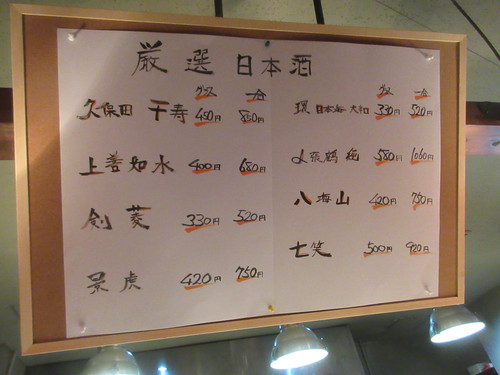 厳選日本酒
グラス 一合
久保田 千寿 450円 800円
上善如水 400円 680円
剣菱 330円 520円
景虎 420円 750円
グラス 一合
環日本海 大和 330円 520円
〆張鶴 純 580円 1060円
八海山 420円 750円
七笑 500円 920円